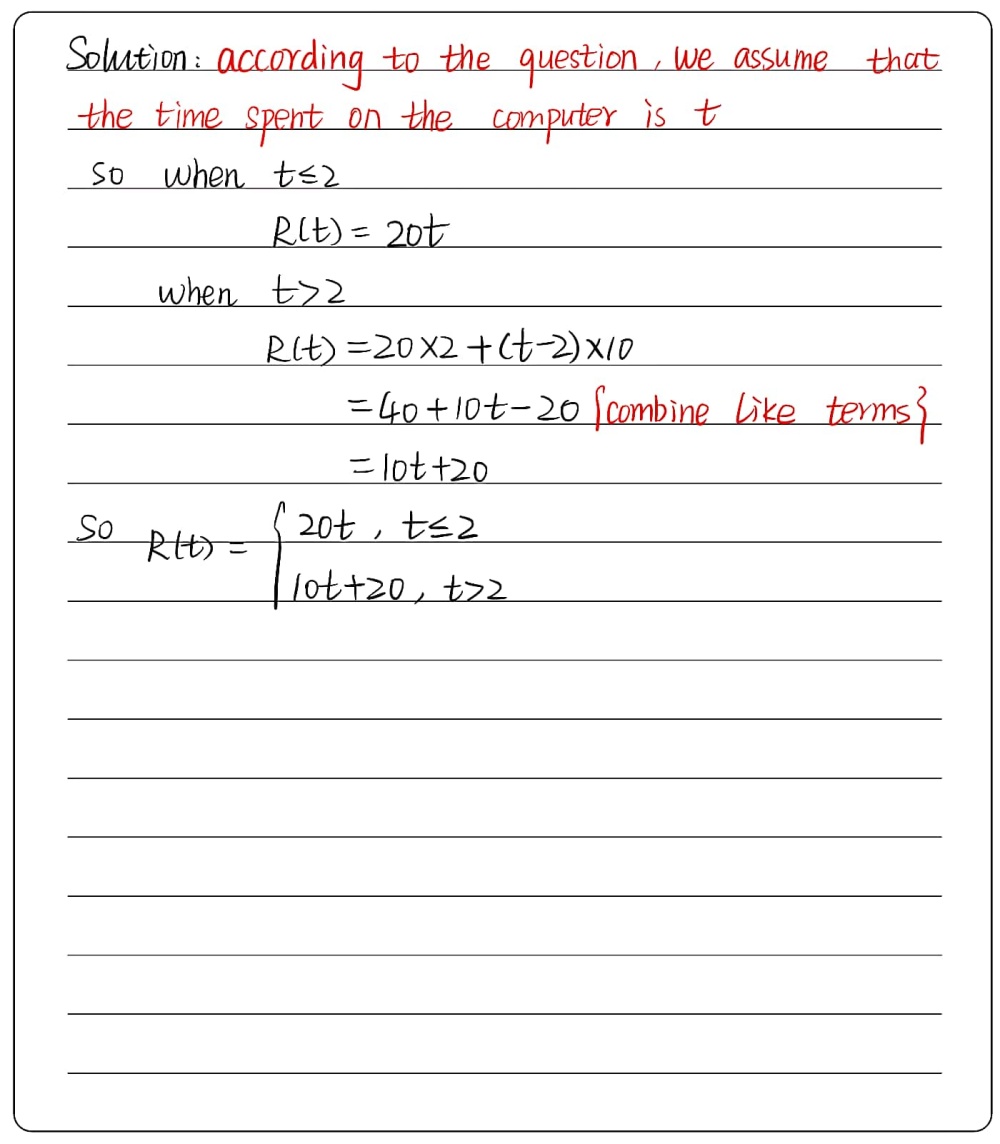 Solution: according to the question, we assume that
the time spent on the computer is t
so when t≤2
R(t) = 20t
when t>2
R(t) =20×2+(t-2)×10
=40+10t-20 {combine like terms}
=10t+20
So R(t) = { 20t, t≤2
10t+20, t>2